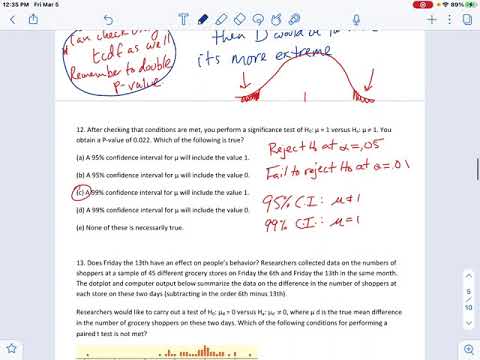 12:35 PM Fri Mar 5
99%
* Can check using
tcdf as well
Remember to double
p-value
then D would be
its more extreme
12. After checking that conditions are met, you perform a significance test of H₀: μ = 1 versus Hₐ: μ ≠ 1. You
obtain a P-value of 0.022. Which of the following is true?
(a) A 95% confidence interval for μ will include the value 1.
(b) A 95% confidence interval for μ will include the value 0.
(c) A 99% confidence interval for μ will include the value 1.
(d) A 99% confidence interval for μ will include the value 0.
(e) None of these is necessarily true.
Reject H₀ at α=.05
Fail to reject H₀ at α=.01
95% C.I: μ≠1
99% C.I: μ=1
13. Does Friday the 13th have an effect on people's behavior? Researchers collected data on the numbers of
shoppers at a sample of 45 different grocery stores on Friday the 6th and Friday the 13th in the same month.
The dotplot and computer output below summarize the data on the difference in the number of shoppers at
each store on these two days (subtracting in the order 6th minus 13th).
Researchers would like to carry out a test of H₀: μd = 0 versus Hₐ: μd ≠ 0, where μ d is the true mean difference
in the number of grocery shoppers on these two days. Which of the following conditions for performing a
paired t test is not met?
5
/
10